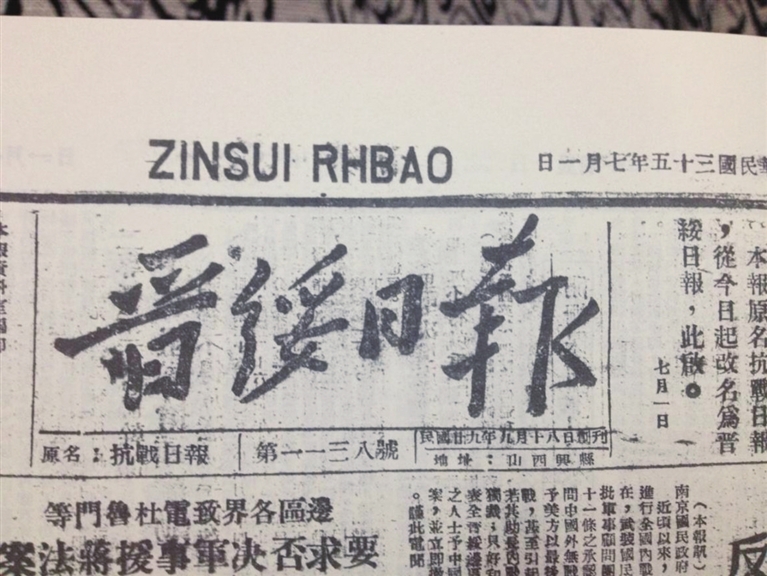 ZINSUI RHBAO
華民國三十五年七月一日
晉綏日報
原名：抗戰日報
第一一三八號
民國廿九年九月十八日創刊
地址：山西興縣
本報原名抗戰日報
，從今日起改名爲晉
綏日報，此啟。
七月一日
邊區各界致電杜魯門等
要求否决軍事援蔣法案
反
（本報訊）
近頃以來，
南京國民政府
進行全國內戰
在，武裝國民
批軍事顧問團
十一條之承認
間中國外無戰
予美方以最後
戰，甚至引起
若其助長內戰
獨裁；只好和
之人士予中國
案，並立即撤
。謹此電聞